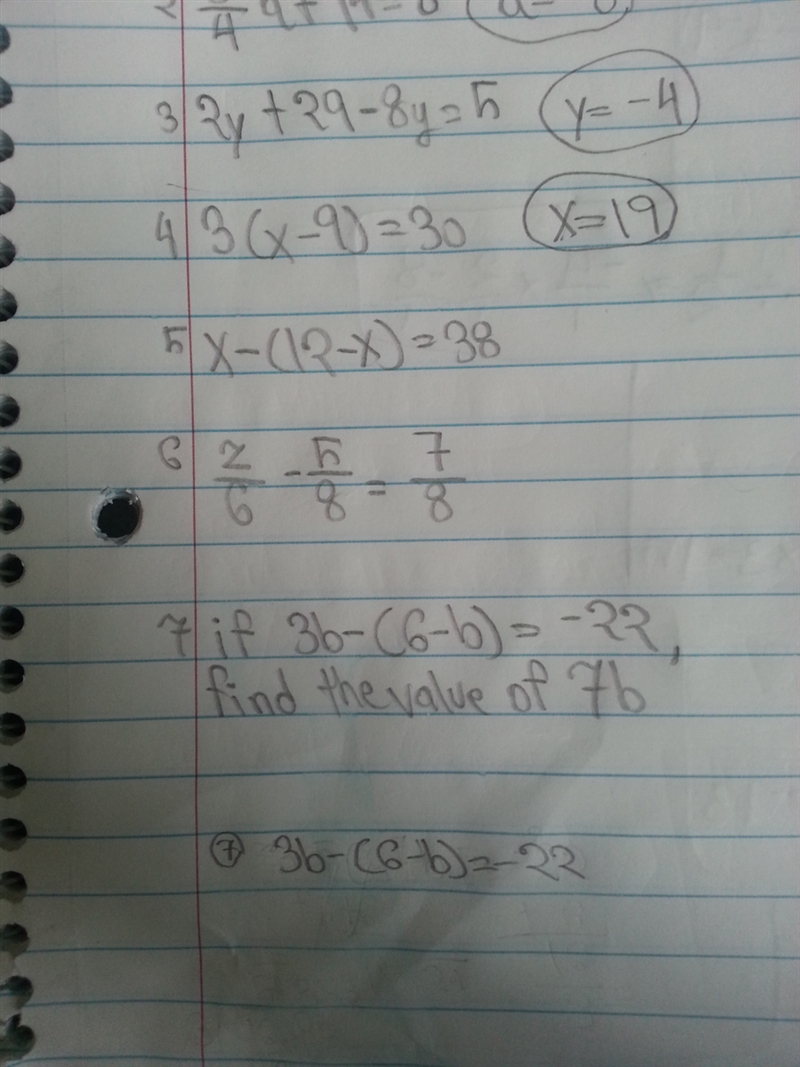 3 2y + 29 - 8y = 5 y = -4
4 3(x - 9) = 30 x = 19
5 x - (12 - x) = 38
6 z/6 - 5/8 = 7/8
7 if 3b - (6 - b) = -22,
find the value of 7b
⑦ 3b - (6 - b) = -22